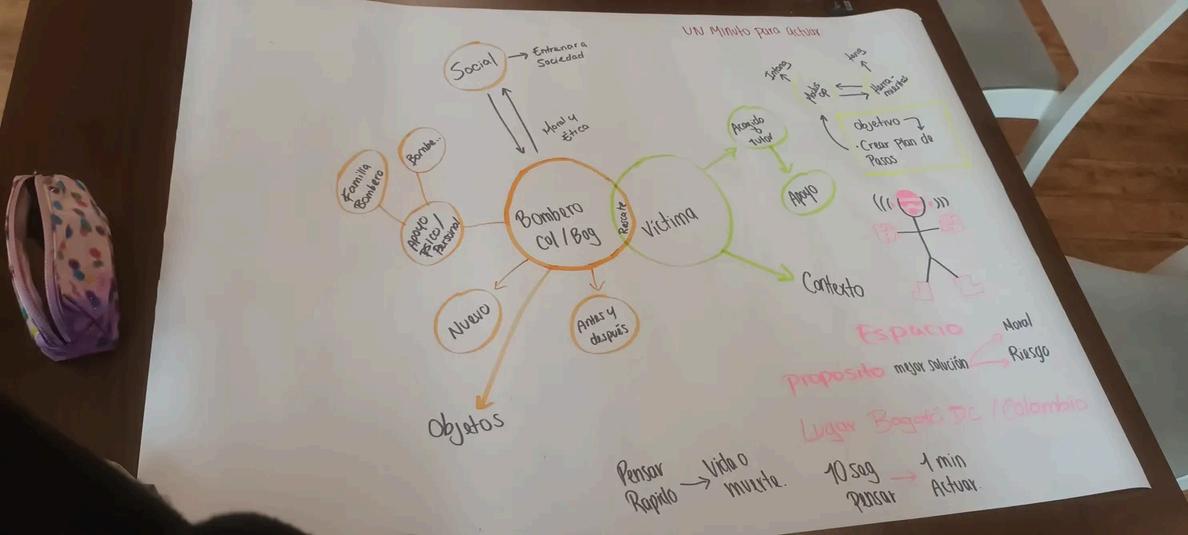 UN Minuto para actuar
Social
Entrenar a
Sociedad
Moral y
Ética
Bombe..
Familia
Bombero
Apoyo
Psico/
Personal
Bombero
Col/Bog
Rescate
Víctima
Nuevo
Antes y
después
Objetos
Apoyo
Contexto
Intang
tang
Herra-
mientas
Objetivo
·Crear Plan de
Pasos
Espacio
Proposito mejor solución
Moral
Riesgo
Lugar Bogotá DC / Colombia
Pensar
Rapido
Vida o
muerte.
10 seg
Pensar
1 min
Actuar.